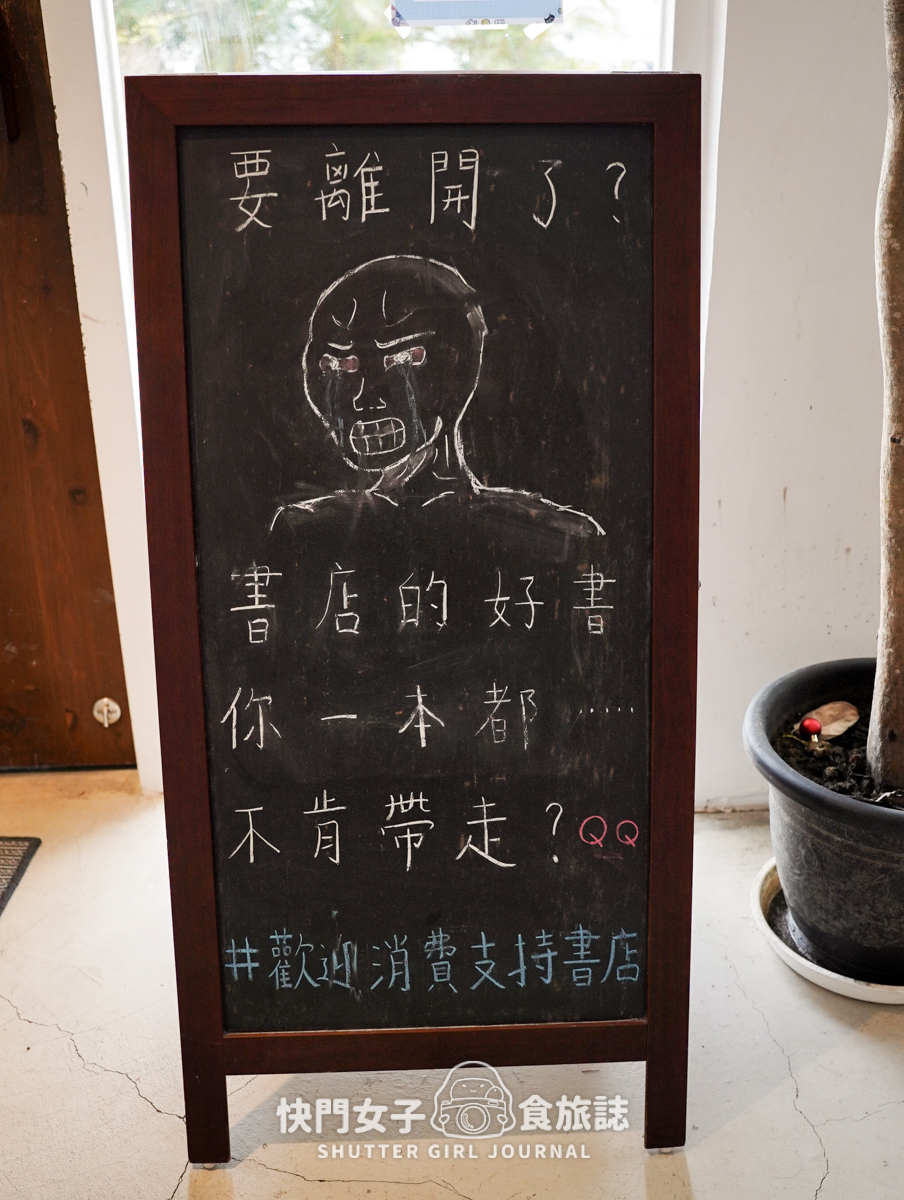 要離開了?
書店的好書
你一本都……
不肯帶走?QQ
#歡迎消費支持書店
快門女子 食旅誌
SHUTTER GIRL JOURNAL